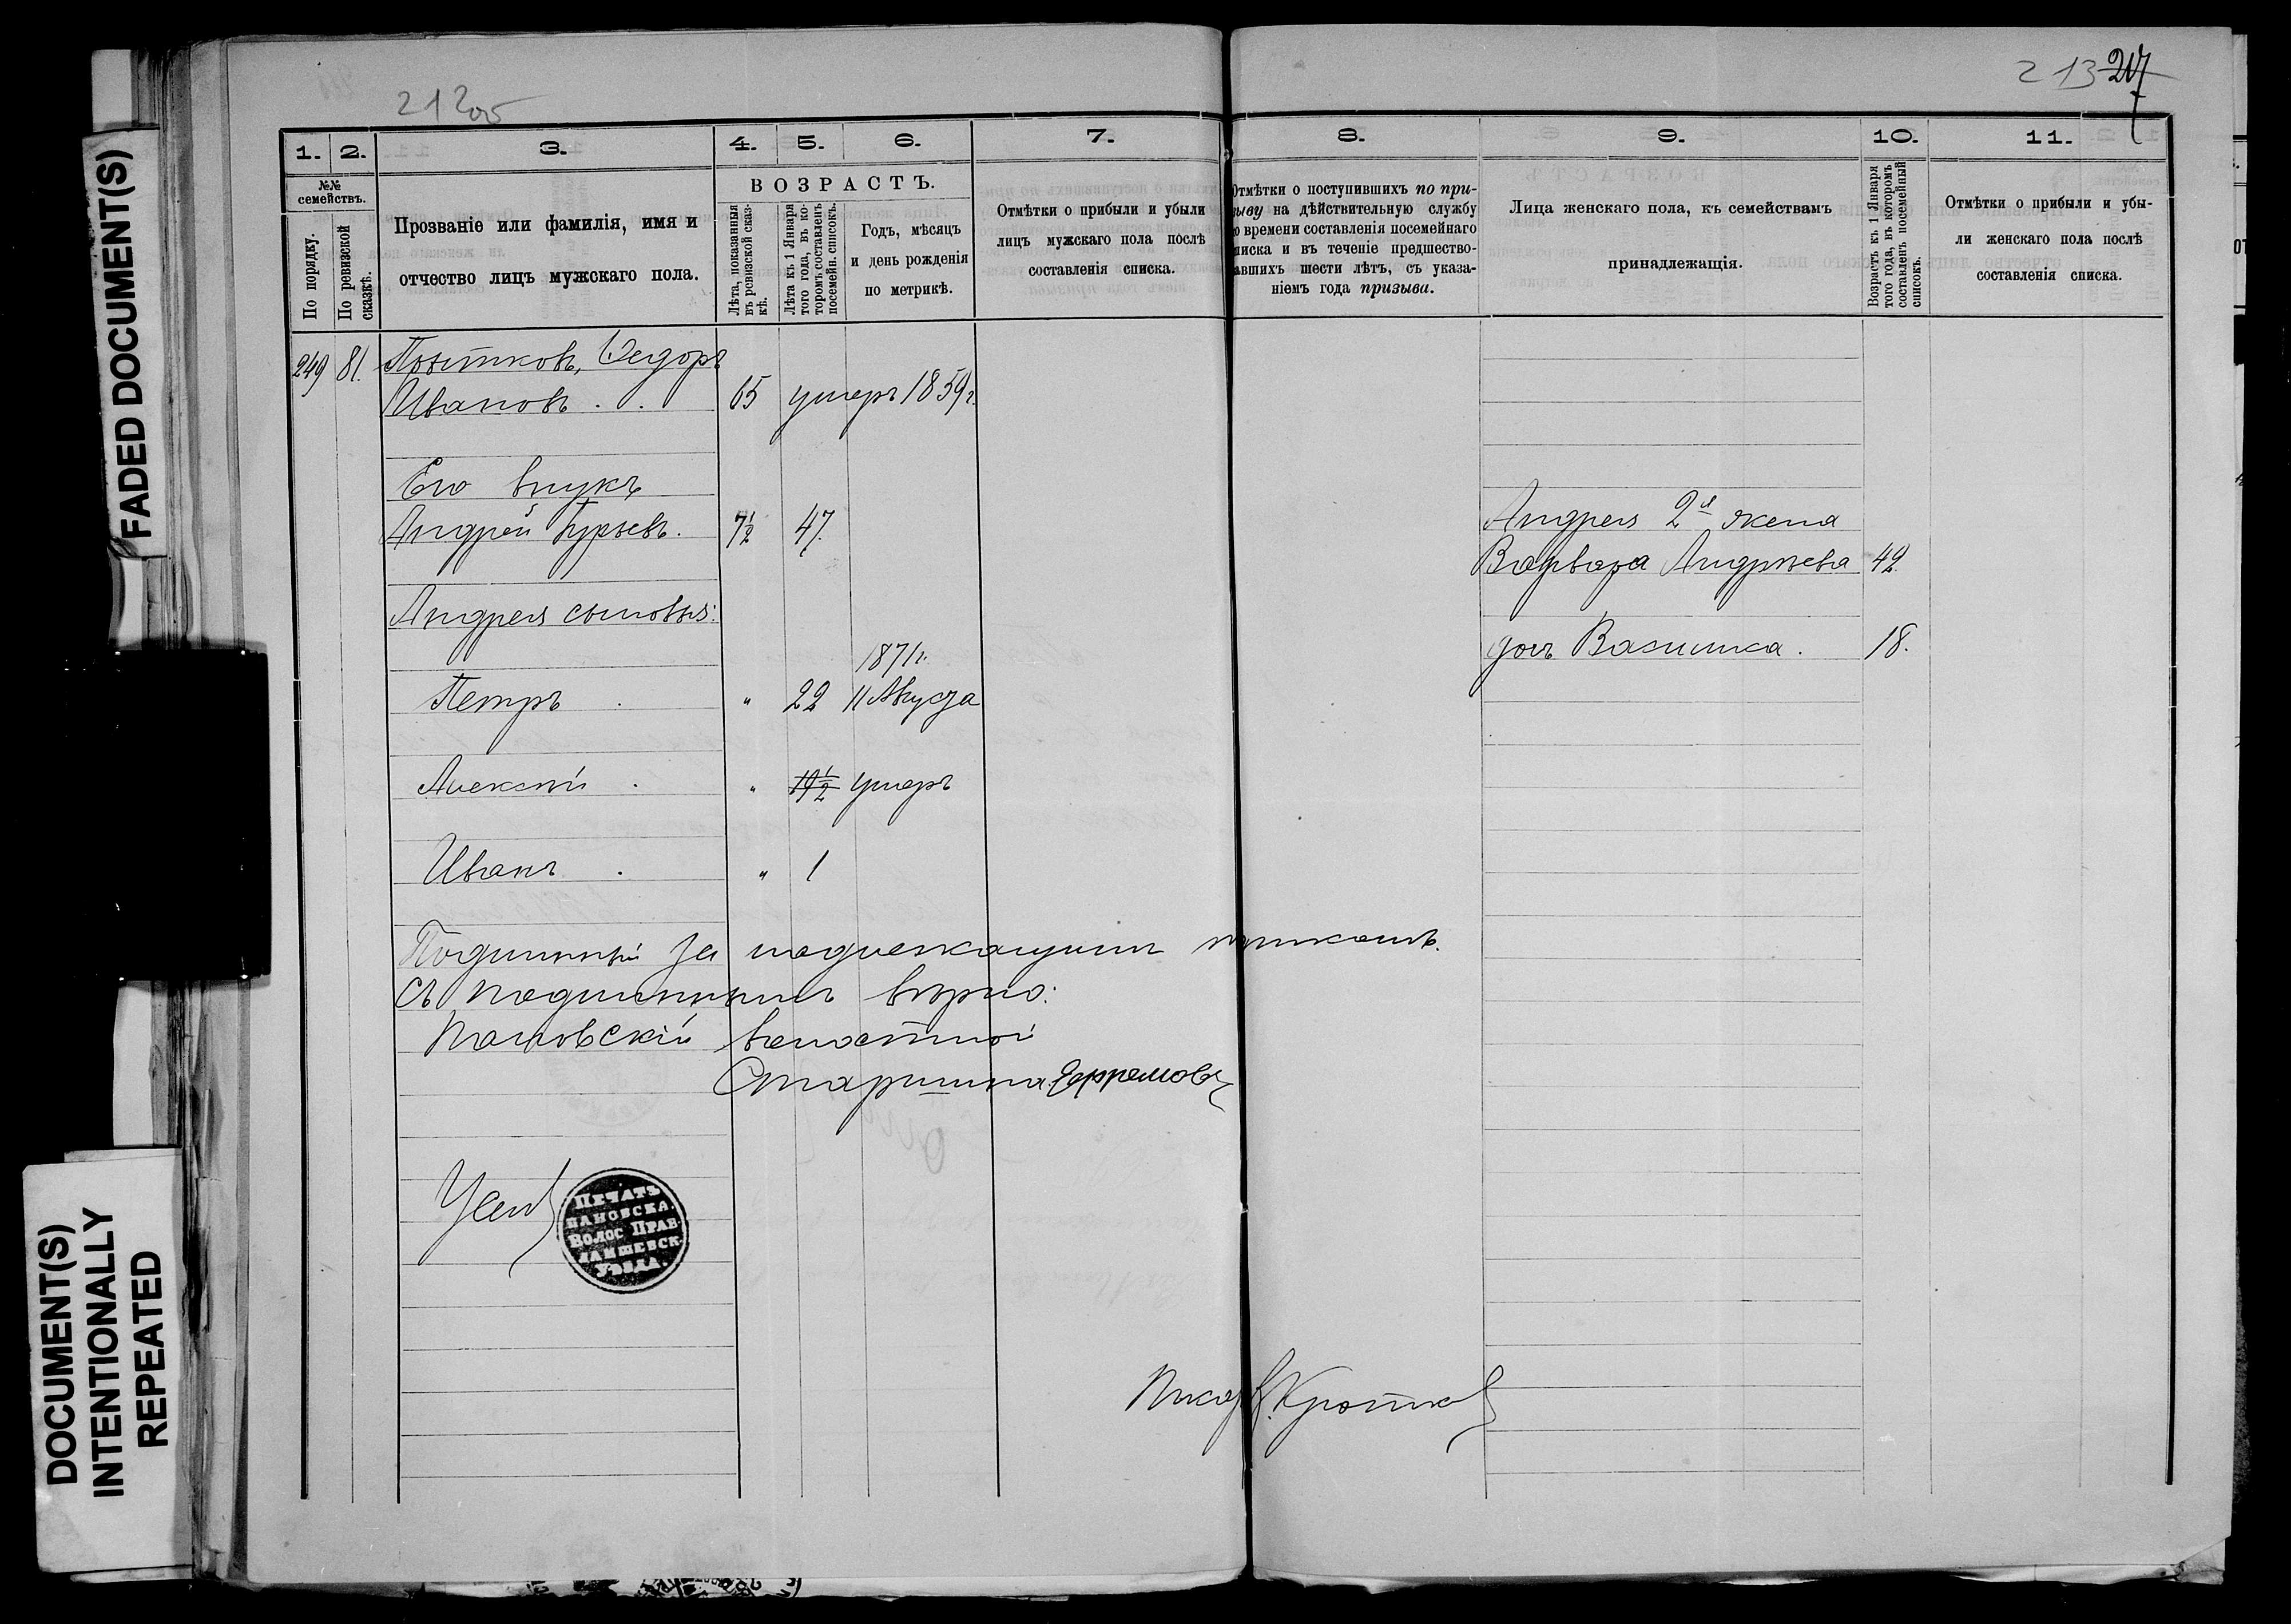 FADED DOCUMENT(S)
DOCUMENT(S)
INTENTIONALLY
REPEATED
212об
213 217
1. 2. 3. 4. 5. 6. 7.
№№
семействъ.
По порядку.
По ревизской
сказкѣ.
Прозваніе или фамилія, имя и
отчество лицъ мужскаго пола.
ВОЗРАСТЪ.
Лѣта, показанныя
въ ревизской сказ-
кѣ.
Лѣта къ 1 Января
того года, въ ко-
торомъ составленъ
посемейн. списокъ.
Годъ, мѣсяцъ
и день рожденія
по метрикѣ.
Отмѣтки о прибыли и убыли
лицъ мужскаго пола послѣ
составленія списка.
249 81. Федоръ
Ивановъ . . 65 умеръ 1859 г.
Его внукъ
Андрей Гурьевъ. 7 1/2 47.
Андрея сыновья:
1871 г.
Петръ . " 22 11 Августа
Алексѣй . " 19 1/2 умеръ
Иванъ . " 1
Подлинный за надлежащимъ
съ подлиннымъ вѣрно:
Пановскій волостной
Старшина Ефремовъ
ПЕЧАТЬ
ПАНОВСКА.
ВОЛОС ПРАВ.
ЛАИШЕВСК.
УѢЗДА.
8. 9. 10. 11.
Отмѣтки о поступившихъ по при-
зыву на дѣйствительную службу
о времени составленія посемейнаго
писка и въ теченіе предшество-
авшихъ шести лѣтъ, съ указа-
ніемъ года призыва.
Лица женскаго пола, къ семействамъ
принадлежащія.
Возрастъ къ 1 Января
того года, въ которомъ
составленъ посемейный
списокъ.
Отмѣтки о прибыли и убы-
ли женскаго пола послѣ
составленія списка.
Андрея 2я жена
Варвара Андрѣева 42
дочь Василиса . 18.
Писарь В. Кротков